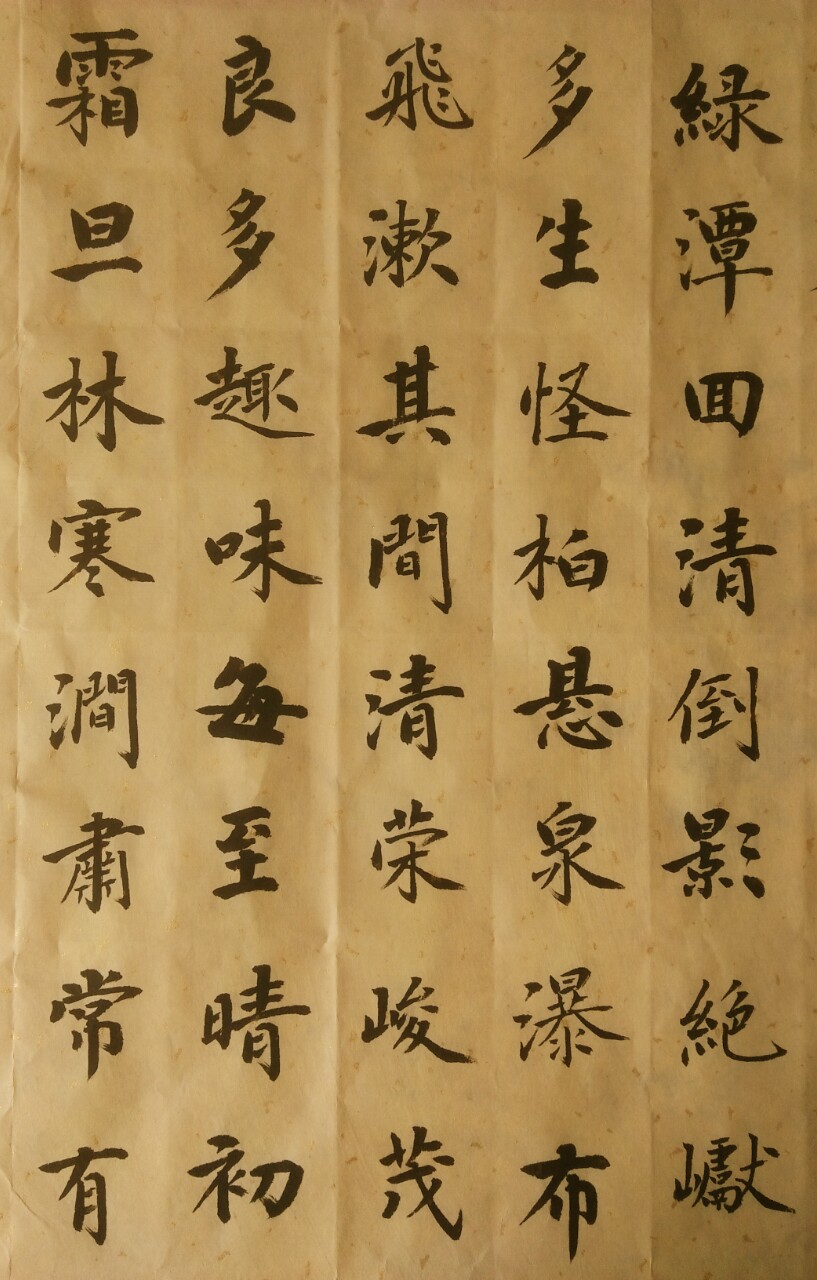 緑潭囬清倒影絶巘
多生怪柏悬泉瀑布
飛漱其間清荣峻茂
良多趣味每至晴初
霜旦林寒澗肅常有